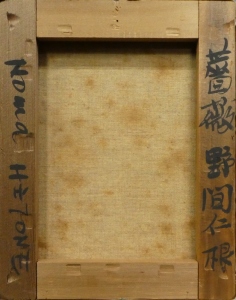 薔薇 野間仁根
Noma HiTONE